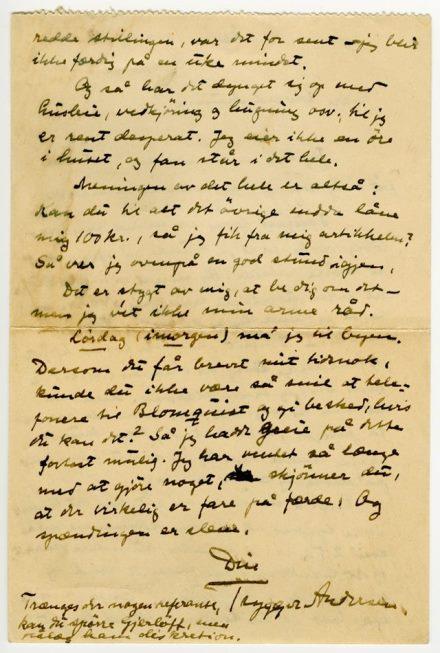 redde stillingen, var det for sent – jeg blir
ikke færdig på en uke mindst.
Og så har det dynget sig op med
husleie, vedkjøring & hugning osv., til jeg
er rent desperat. Jeg eier ikke en øre
i huset, og fan står i det hele.
Meningen av det hele er altså:
Kan du til alt det övrige endda låne
mig 100 kr., så jeg fik fra mig artikkelen?
Så var jeg ovenpå en god stund igjen.
Det er stygt av mig, at be dig om det –
men jeg vét ikke min arme råd.
Lørdag (imorgen) må jeg til byen.
Dersom du får brevet mit tidnok,
kunde du ikke være så snil at tele-
fonere til Blomquist og gi besked, hvis
du kan det? Så jeg hadde greie på dette
fortest mulig. Jeg har ventet så længe
med at gjöre noget, skjönner du,
at der virkelig er fare på færde. Og
spændingen er slem.
Din
Tryggve Andersen.
Trænges der nogen referanse,
kan du spørre Gjerløff, men
pålæg ham diskretion.